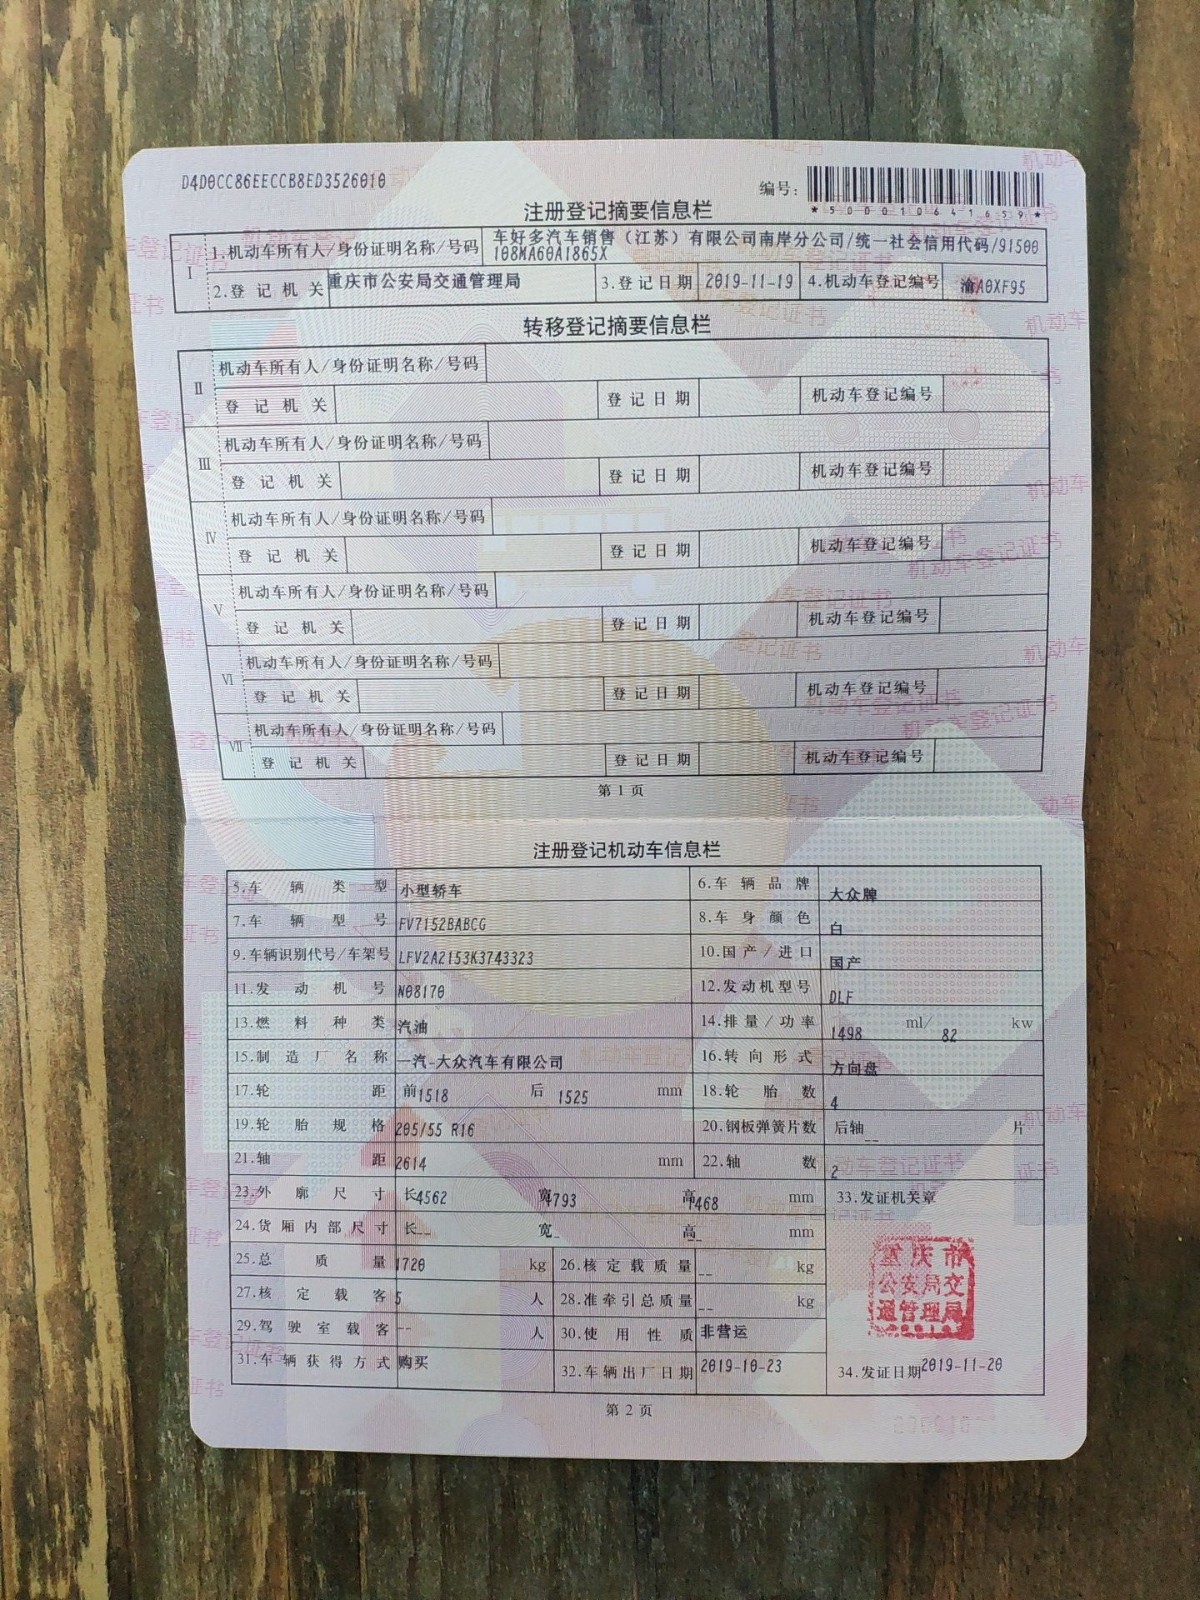 D4D0CC86EECCB8ED3526010
编号：
*500010641659*
注册登记摘要信息栏
I 1.机动车所有人/身份证明名称/号码 车好多汽车销售（江苏）有限公司南岸分公司/统一社会信用代码/91500
108MA60A1865X
2.登记机关 重庆市公安局交通管理局 3.登记日期 2019-11-19 4.机动车登记编号 渝A0XF95
转移登记摘要信息栏
II 机动车所有人/身份证明名称/号码
登记机关 登记日期 机动车登记编号
III 机动车所有人/身份证明名称/号码
登记机关 登记日期 机动车登记编号
IV 机动车所有人/身份证明名称/号码
登记机关 登记日期 机动车登记编号
V 机动车所有人/身份证明名称/号码
登记机关 登记日期 机动车登记编号
VI 机动车所有人/身份证明名称/号码
登记机关 登记日期 机动车登记编号
VII 机动车所有人/身份证明名称/号码
登记机关 登记日期 机动车登记编号
第 1 页
注册登记机动车信息栏
5.车辆类型 小型轿车 6.车辆品牌 大众牌
7.车辆型号 FV7152BABCG 8.车身颜色 白
9.车辆识别代号/车架号 LFV2A2153K3743323 10.国产/进口 国产
11.发动机号 N08170 12.发动机型号 DLF
13.燃料种类 汽油 14.排量/功率 1498 ml/ 82 kw
15.制造厂名称 一汽-大众汽车有限公司 16.转向形式 方向盘
17.轮距 前1518 后 1525 mm 18.轮胎数 4
19.轮胎规格 205/55 R16 20.钢板弹簧片数 后轴-- 片
21.轴距 2614 mm 22.轴数 2
23.外廓尺寸 长4562 宽1793 高1468 mm 33.发证机关章
24.货厢内部尺寸 长-- 宽-- 高-- mm
25.总质量 1720 kg 26.核定载质量 -- kg
27.核定载客 5 人 28.准牵引总质量 -- kg
29.驾驶室载客 -- 人 30.使用性质 非营运
31.车辆获得方式 购买 32.车辆出厂日期 2019-10-23 34.发证日期 2019-11-20
重庆市
公安局交
通管理局
第 2 页